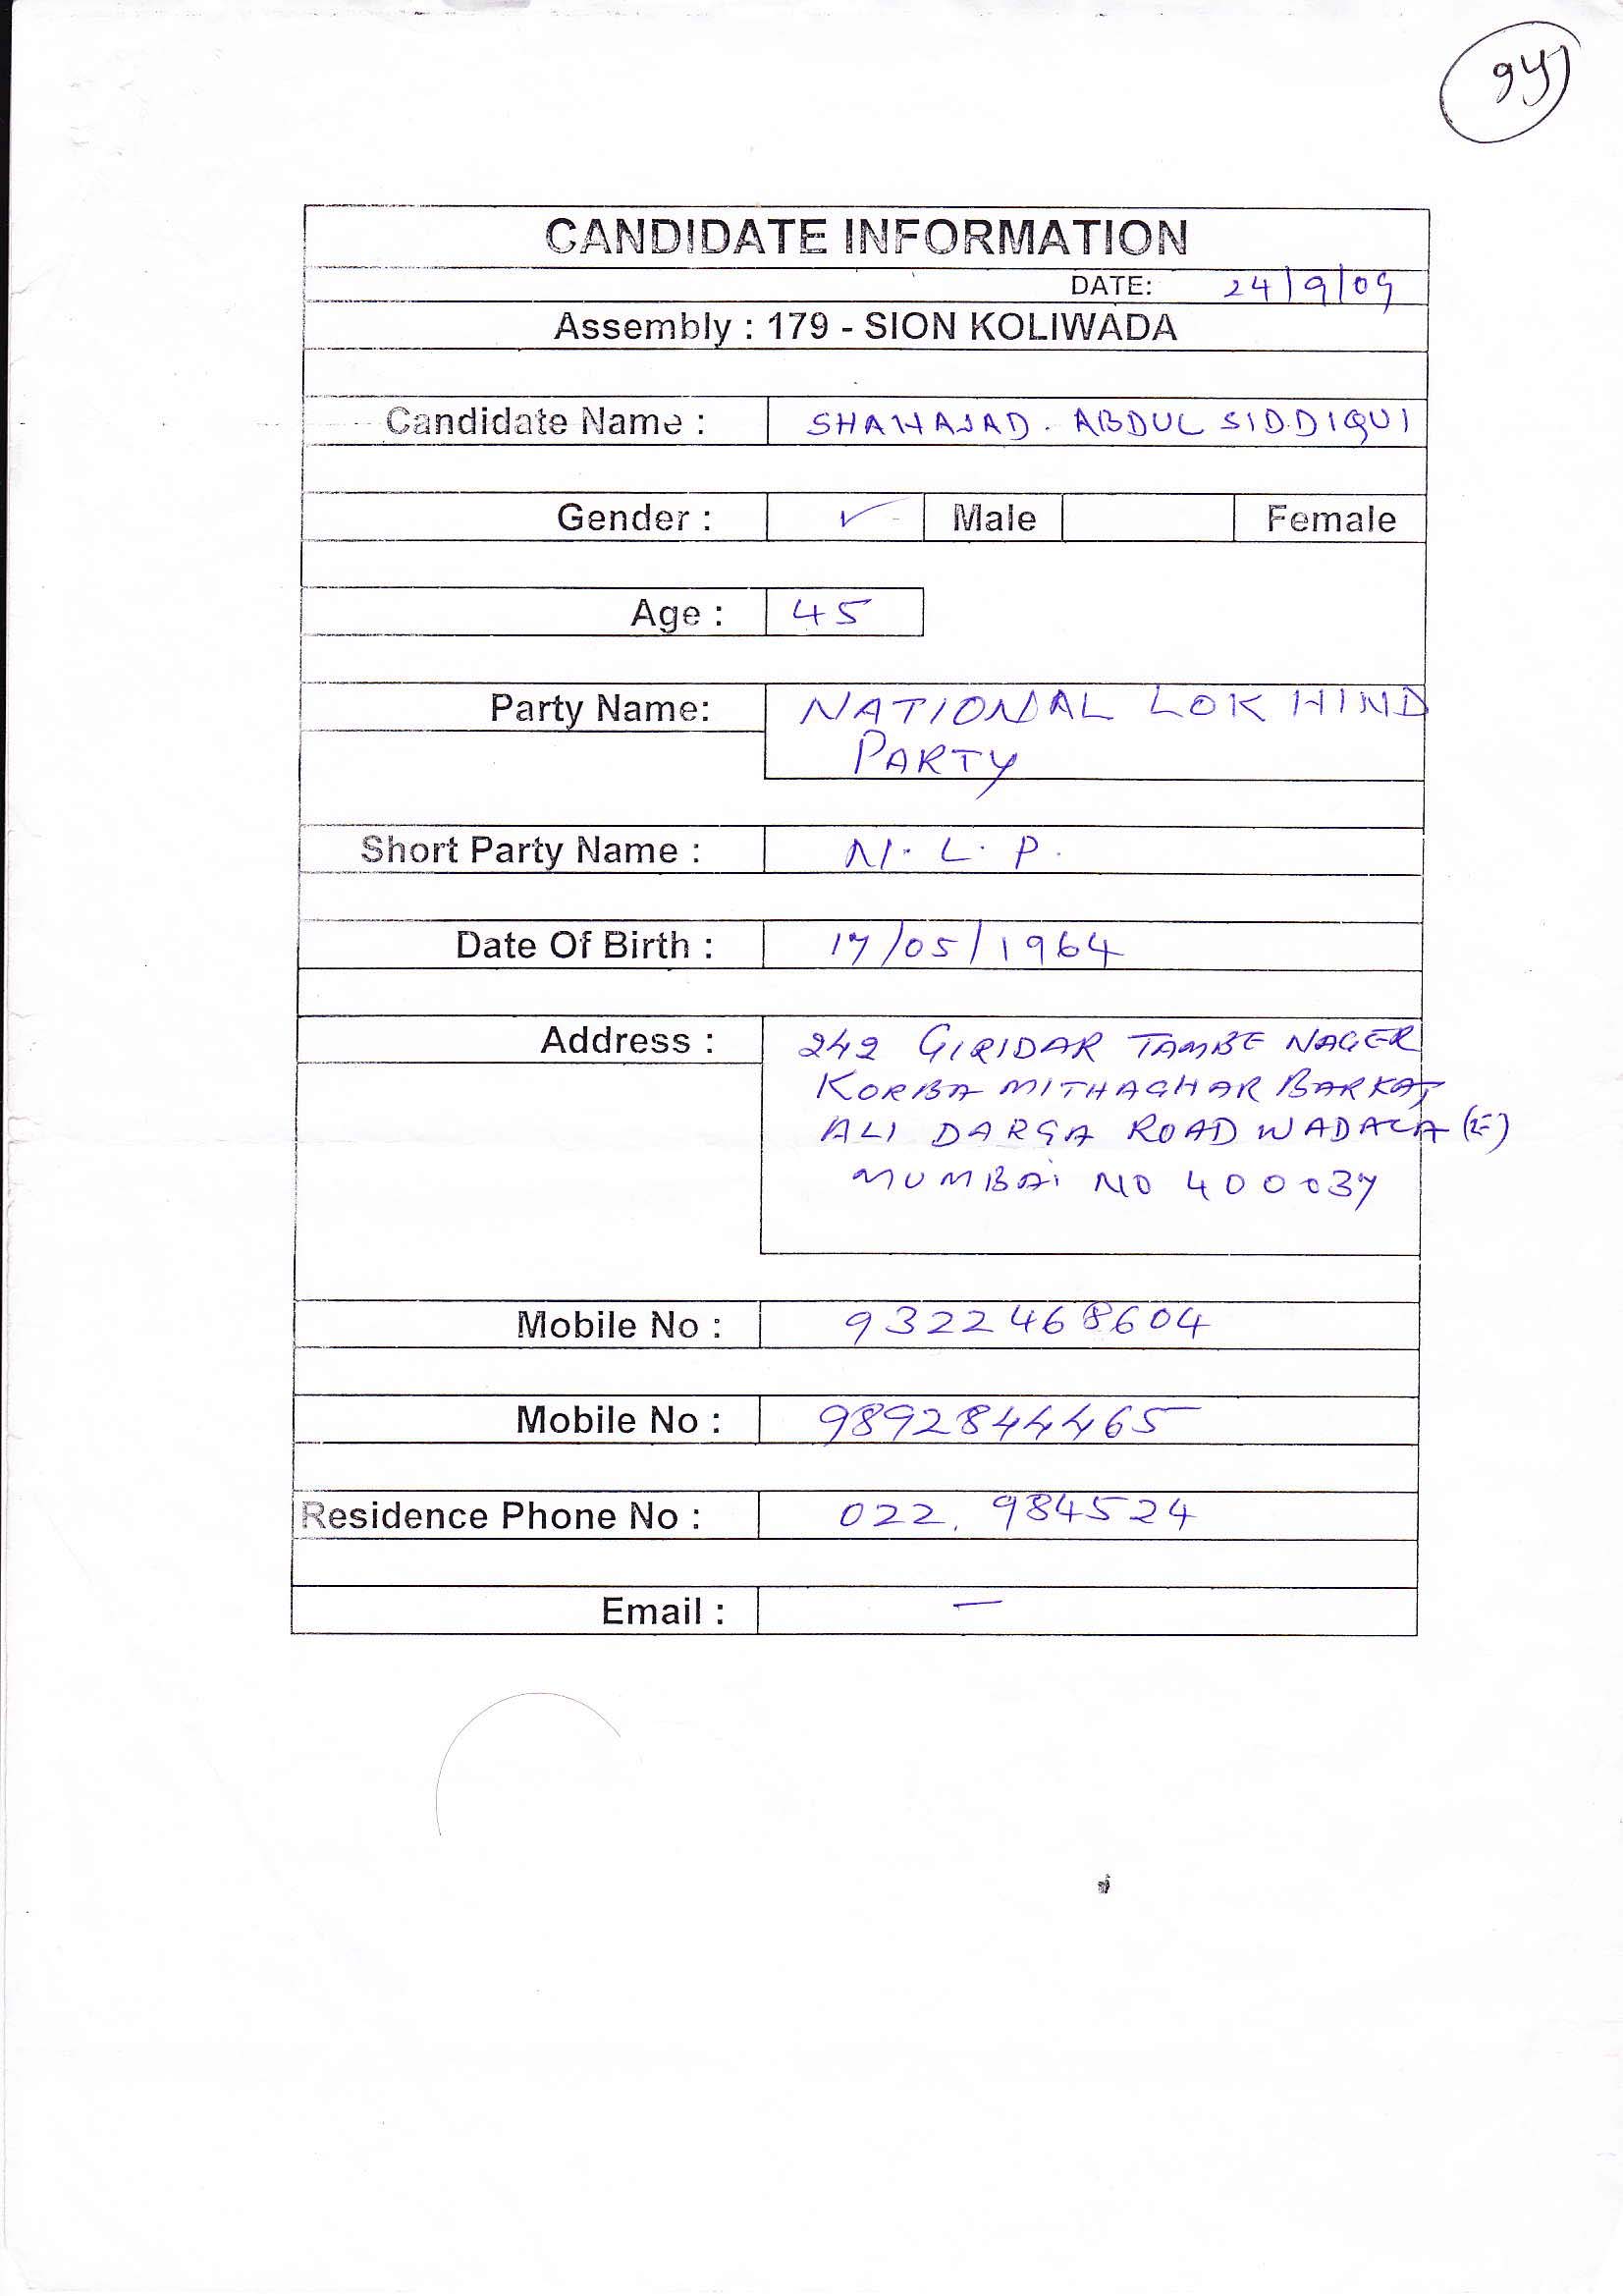 CANDIDATE INFORMATION
DATE: 24/9/09
Assembly : 179 - SION KOLIWADA
Candidate Name : SHAHAJAD. ABDUL SIDDIQUI
Gender : ✓ Male Female
Age : 45
Party Name: NATIONAL LOK HIND
PARTY
Short Party Name : N. L. P.
Date Of Birth : 17/05/1964
Address : 242 GIRIDAR TAMBE NAGER
KORBA MITHAGHAR BARKAT
ALI DARGA ROAD WADALA (E)
MUMBAi NO 400037
Mobile No : 9322468604
Mobile No : 9892844465
Residence Phone No : 022. 984524
Email : —